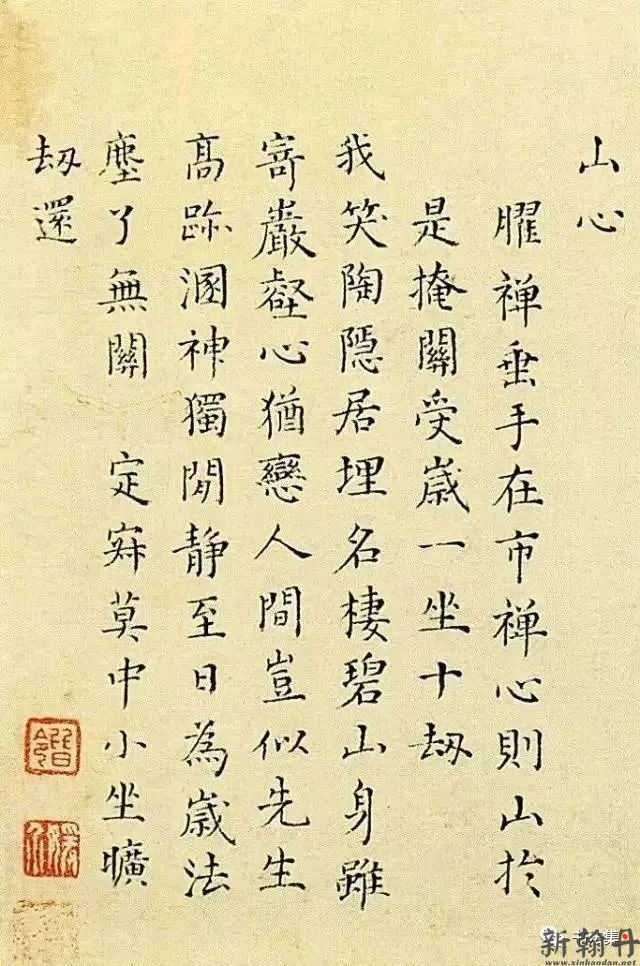 山心
臞禅垂手在市禅心則山於
是掩關受歲一坐十劫
我笑陶隱居埋名棲碧山身雖
寄巖壑心猶戀人間豈似先生
高跡溷神獨閒静至日為歲法
塵了無關　定寂莫中小坐曠
劫還
新翰丹
www.xinhandan.net